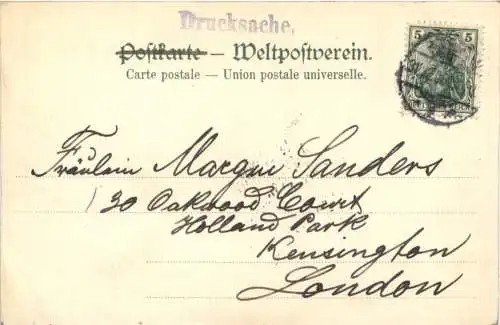 Drucksache.
Postkarte — Weltpostverein.
Carte postale — Union postale universelle.
5 5
Fräulein Margue Sanders
30 Oakwood Court
Holland Park
Kensington
London